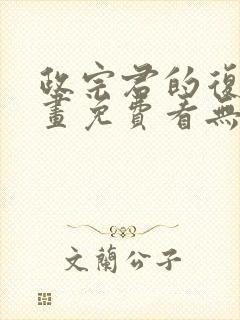 政宗君的復
畫免費看無
文蘭公子